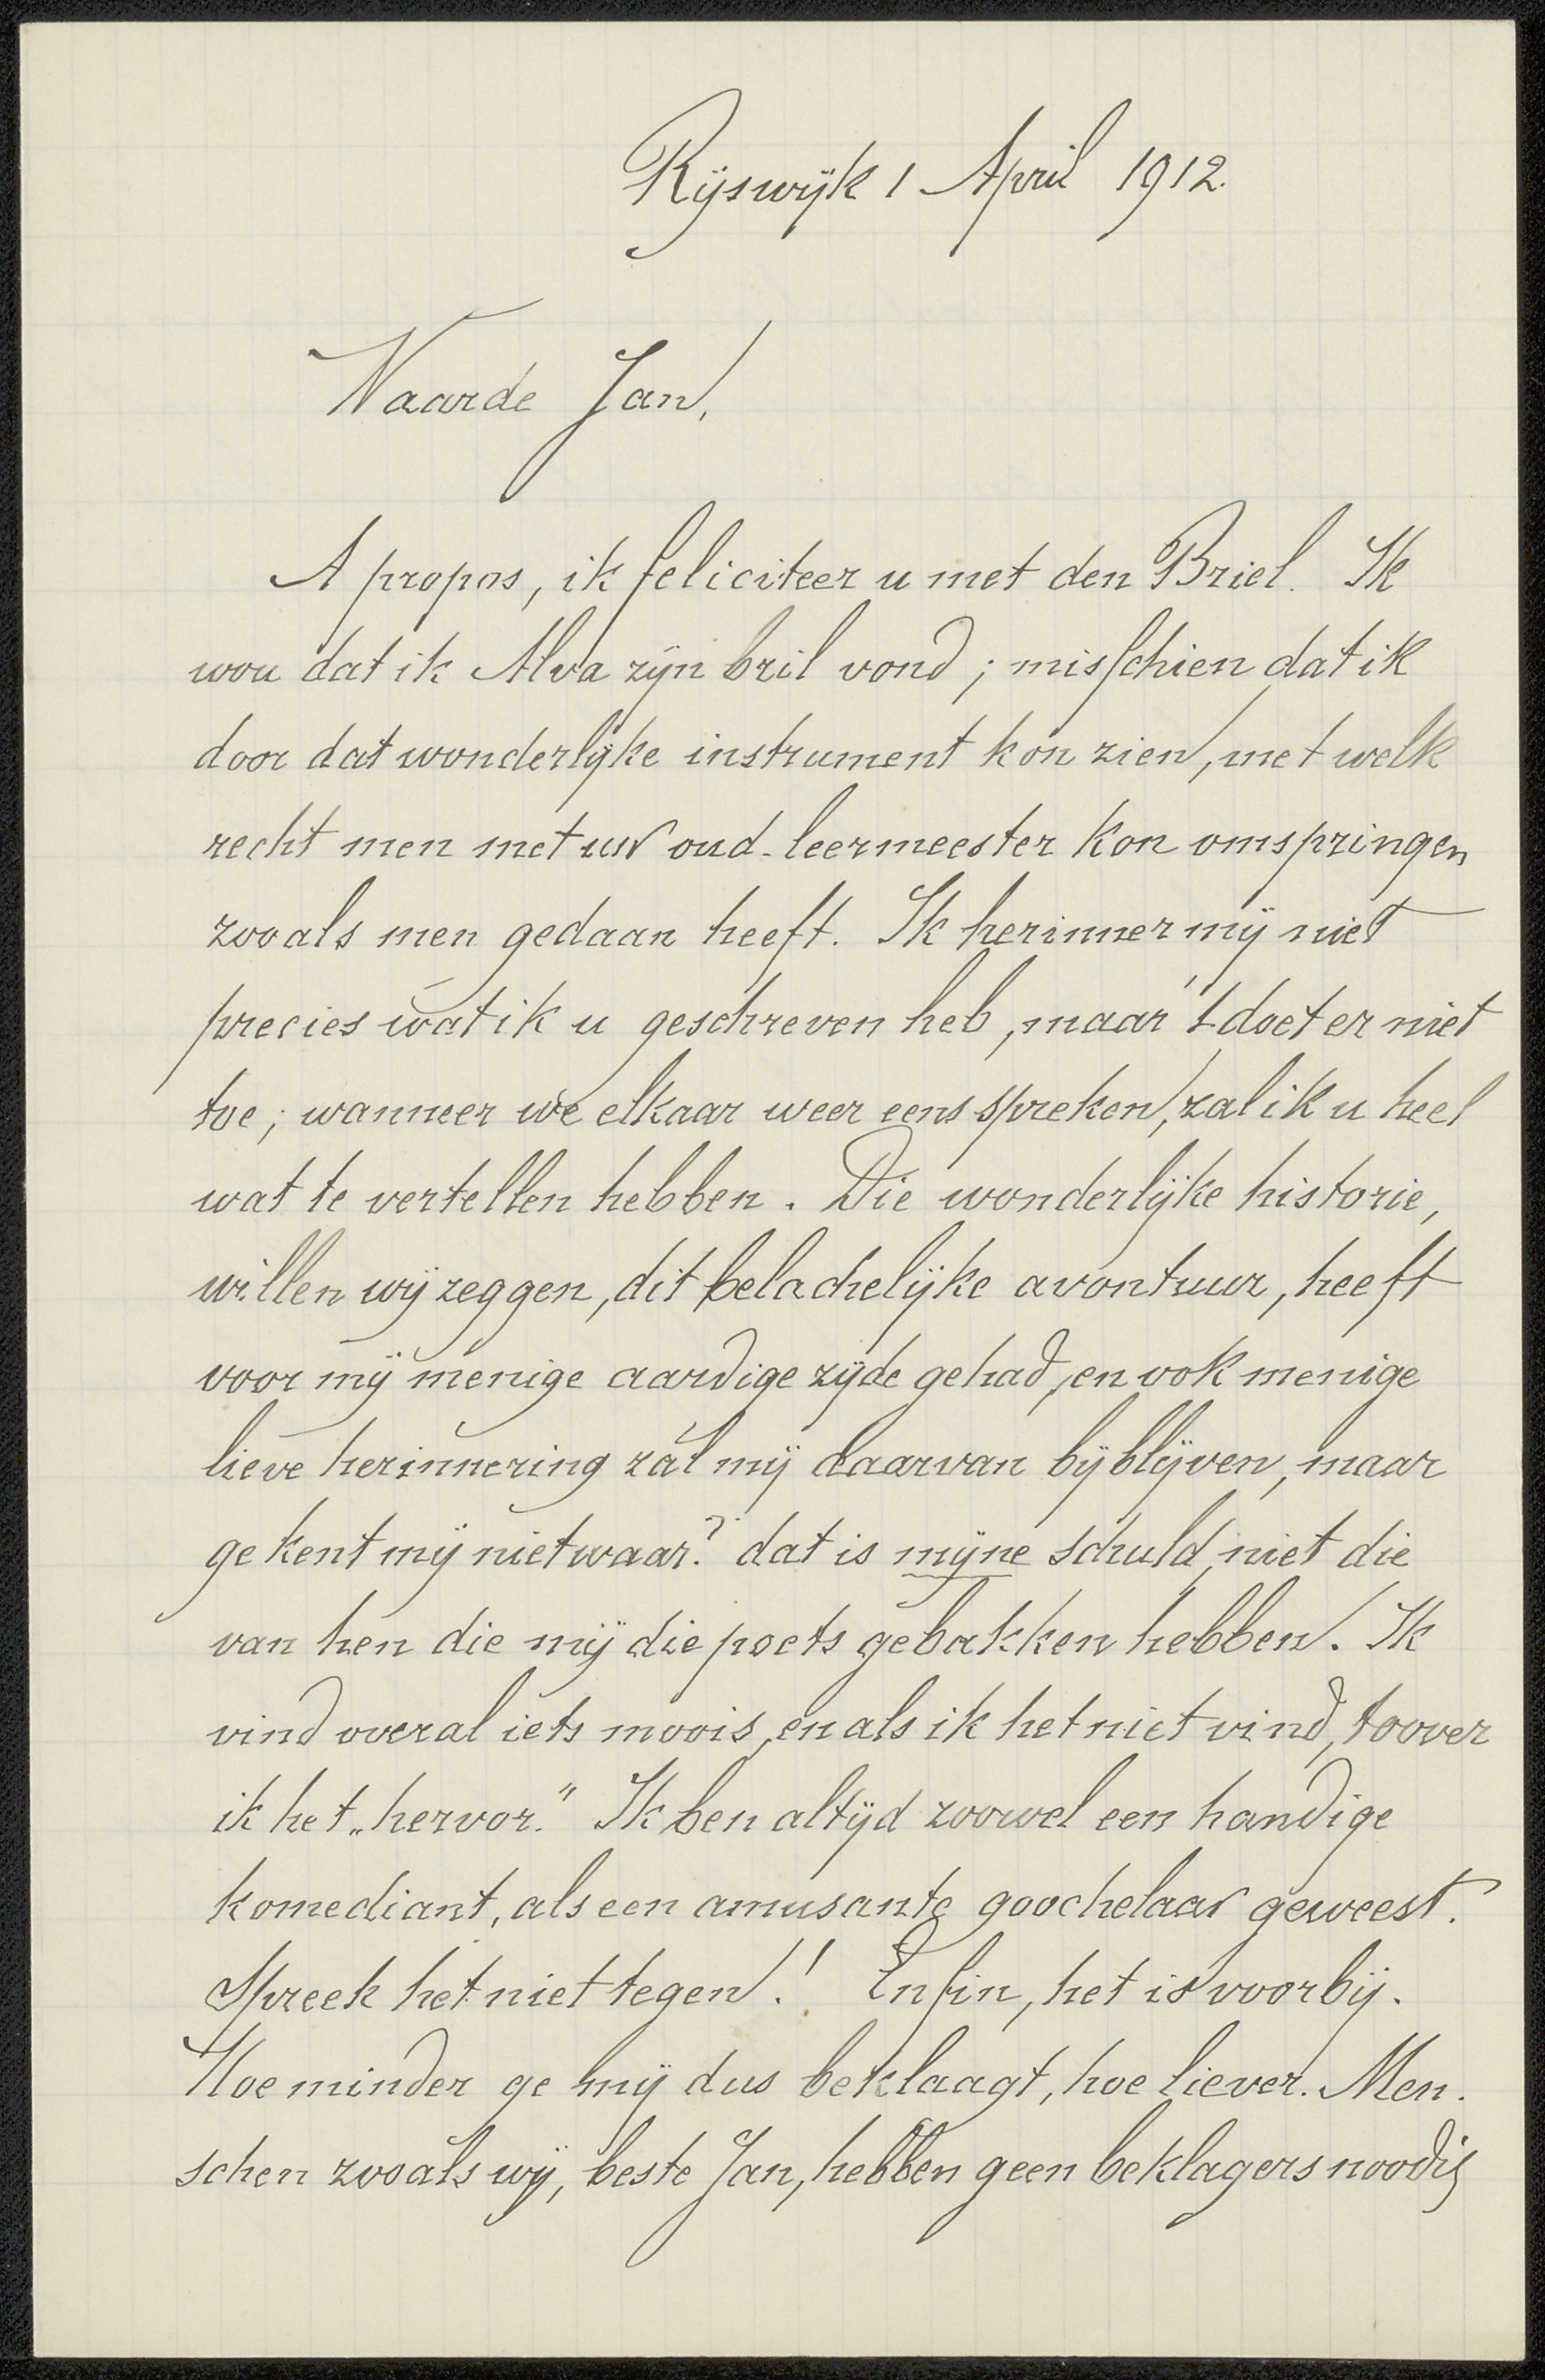 Rijswijk 1 April 1912.
Waarde Jan,
A propos, ik feliciteer u met den Briel. Ik
wou dat ik Alva zijn bril vond; misschien dat ik
door dat wonderlijke instrument kon zien, met welk
recht men met uw oud-leermeester kon omspringen
zooals men gedaan heeft. Ik herinner mij niet
precies wat ik u geschreven heb, maar 't doet er niet
toe; wanneer we elkaar weer eens spreken, zal ik u heel
wat te vertellen hebben. Die wonderlijke historie,
willen wij zeggen, dit belachelijke avontuur, heeft
voor mij menige aardige zijde gehad, en ook menige
lieve herinnering zal mij daarvan bijblijven, maar
ge kent mij niet waar? dat is mijne schuld, niet die
van hen die mij die poets gebakken hebben. Ik
vind overal iets moois, en als ik het niet vind, toover
ik het „hervor." Ik ben altijd zoowel een handige
komediant, als een amusante goochelaar geweest.
Spreek het niet tegen! Enfin, het is voorbij.
Hoe minder ge mij dus beklaagt, hoe liever. Men-
schen zooals wij, beste Jan, hebben geen beklagers noodig